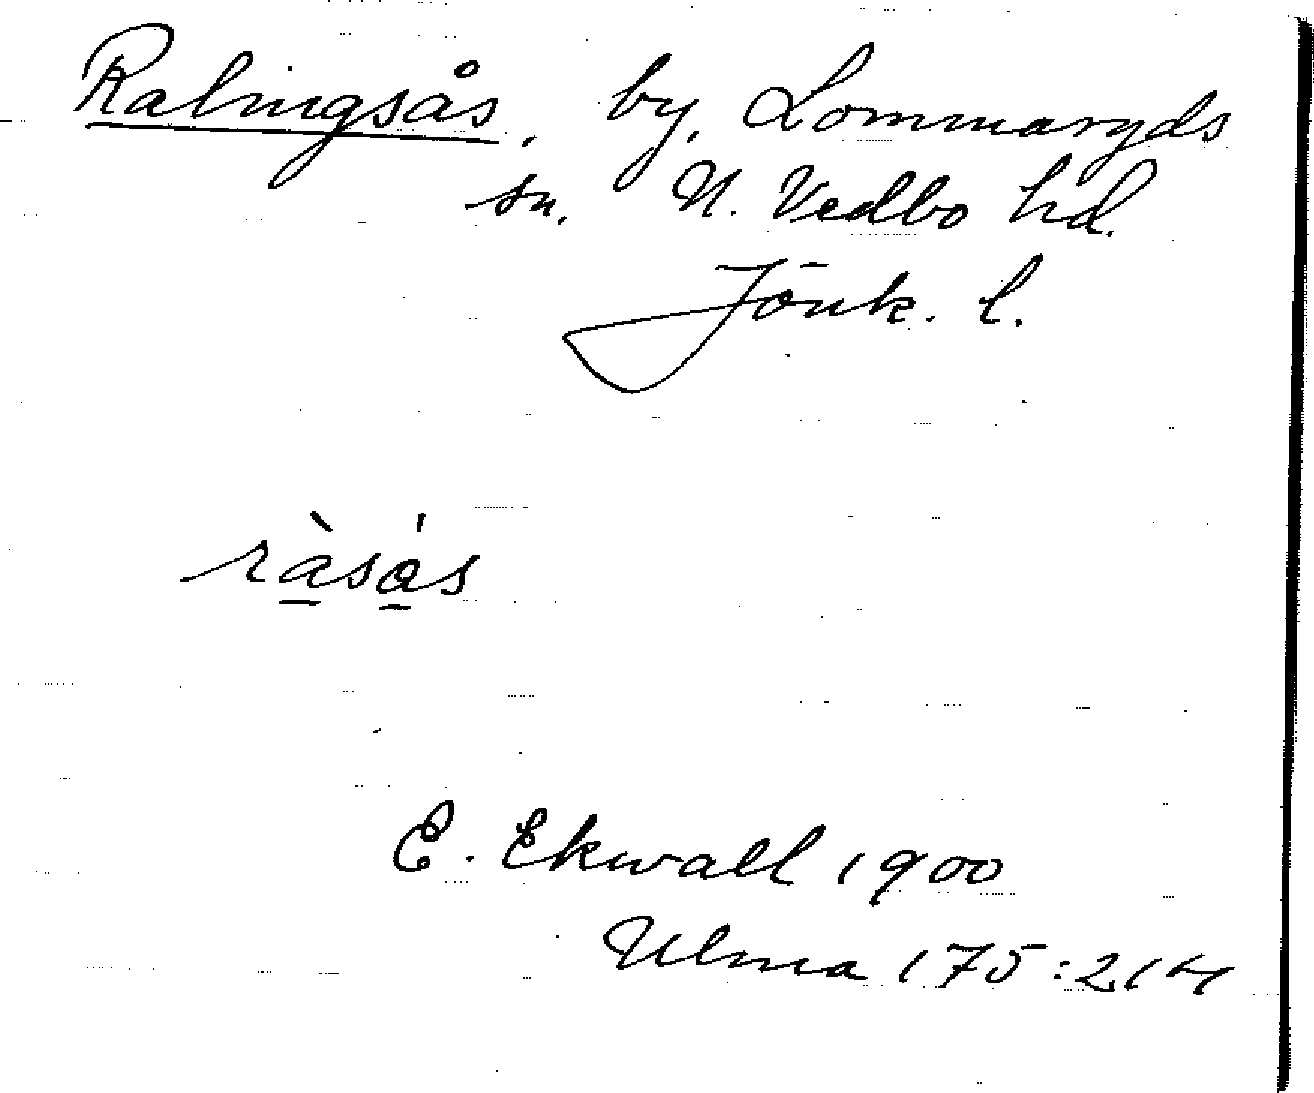 Ralingsås, by, Lommaryds
sn. N. Vedbo hd.
Jönk. l.
ràsás
E. Ekwall 1900
Ulma 175:214